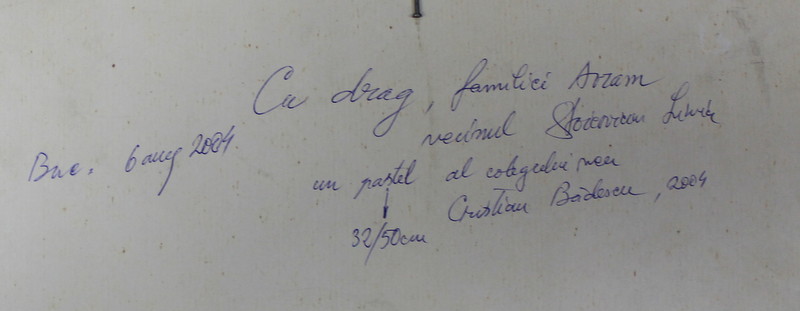 Cu drag, familiei Avram
Buc. 6 aug 2004
vecinul Stoicovican
un pastel al colegului meu
Cristian Bădescu, 2004
32/50cm